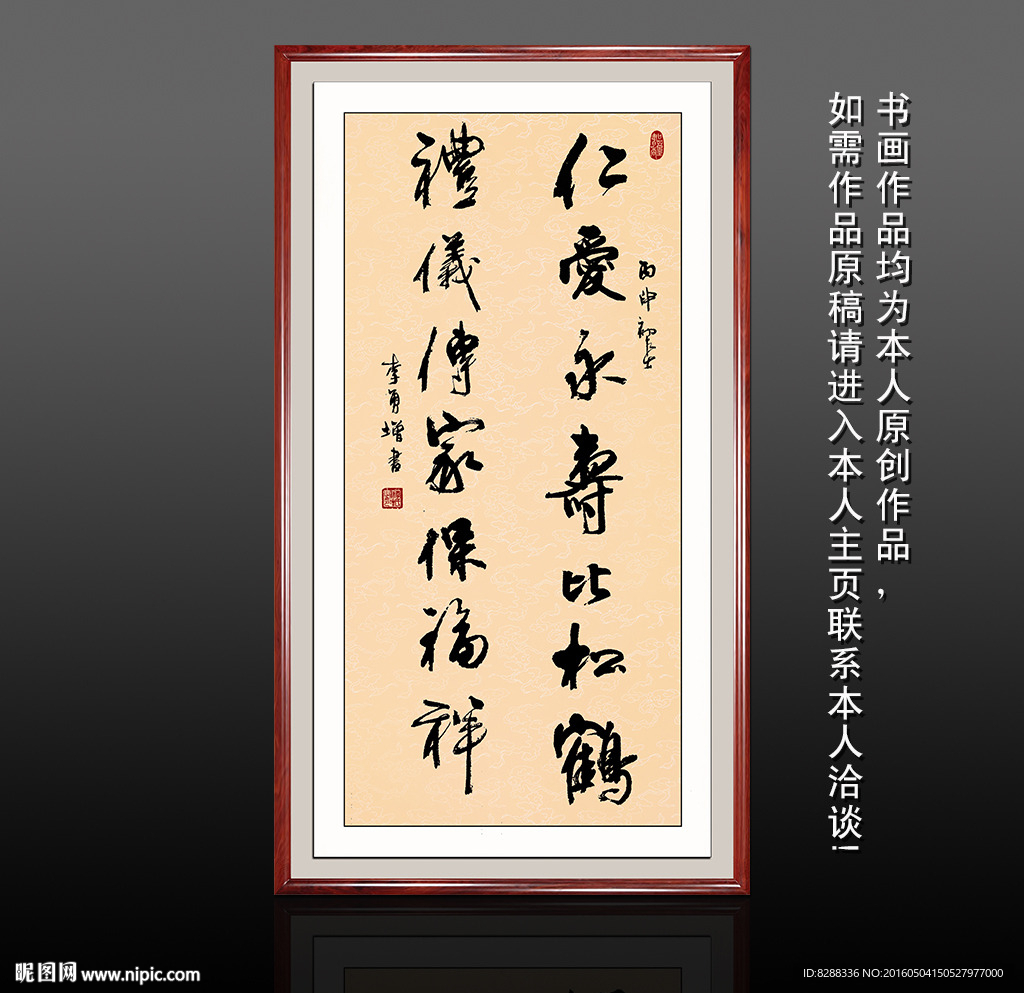 仁愛永壽比松鶴
丙申初
禮儀傳家保福祥
李勇增書
书画作品均为本人原创作品，
如需作品原稿请进入本人主页联系本人洽谈!
昵图网 www.nipic.com
ID:8288336 NO:20160504150527977000